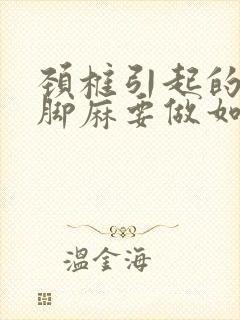 颈椎引起的
脚麻要做如
温金海